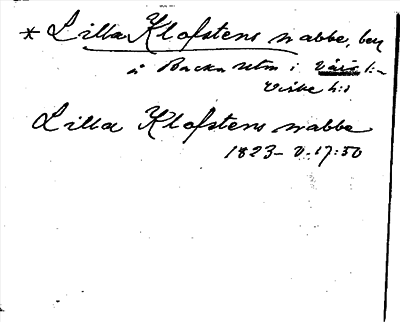 * Lilla Klofstens nabbe, ben
å Backa utm i Värö s:n
Viske h:d
Lilla Klofstens nabbe
1823 - V.17:50